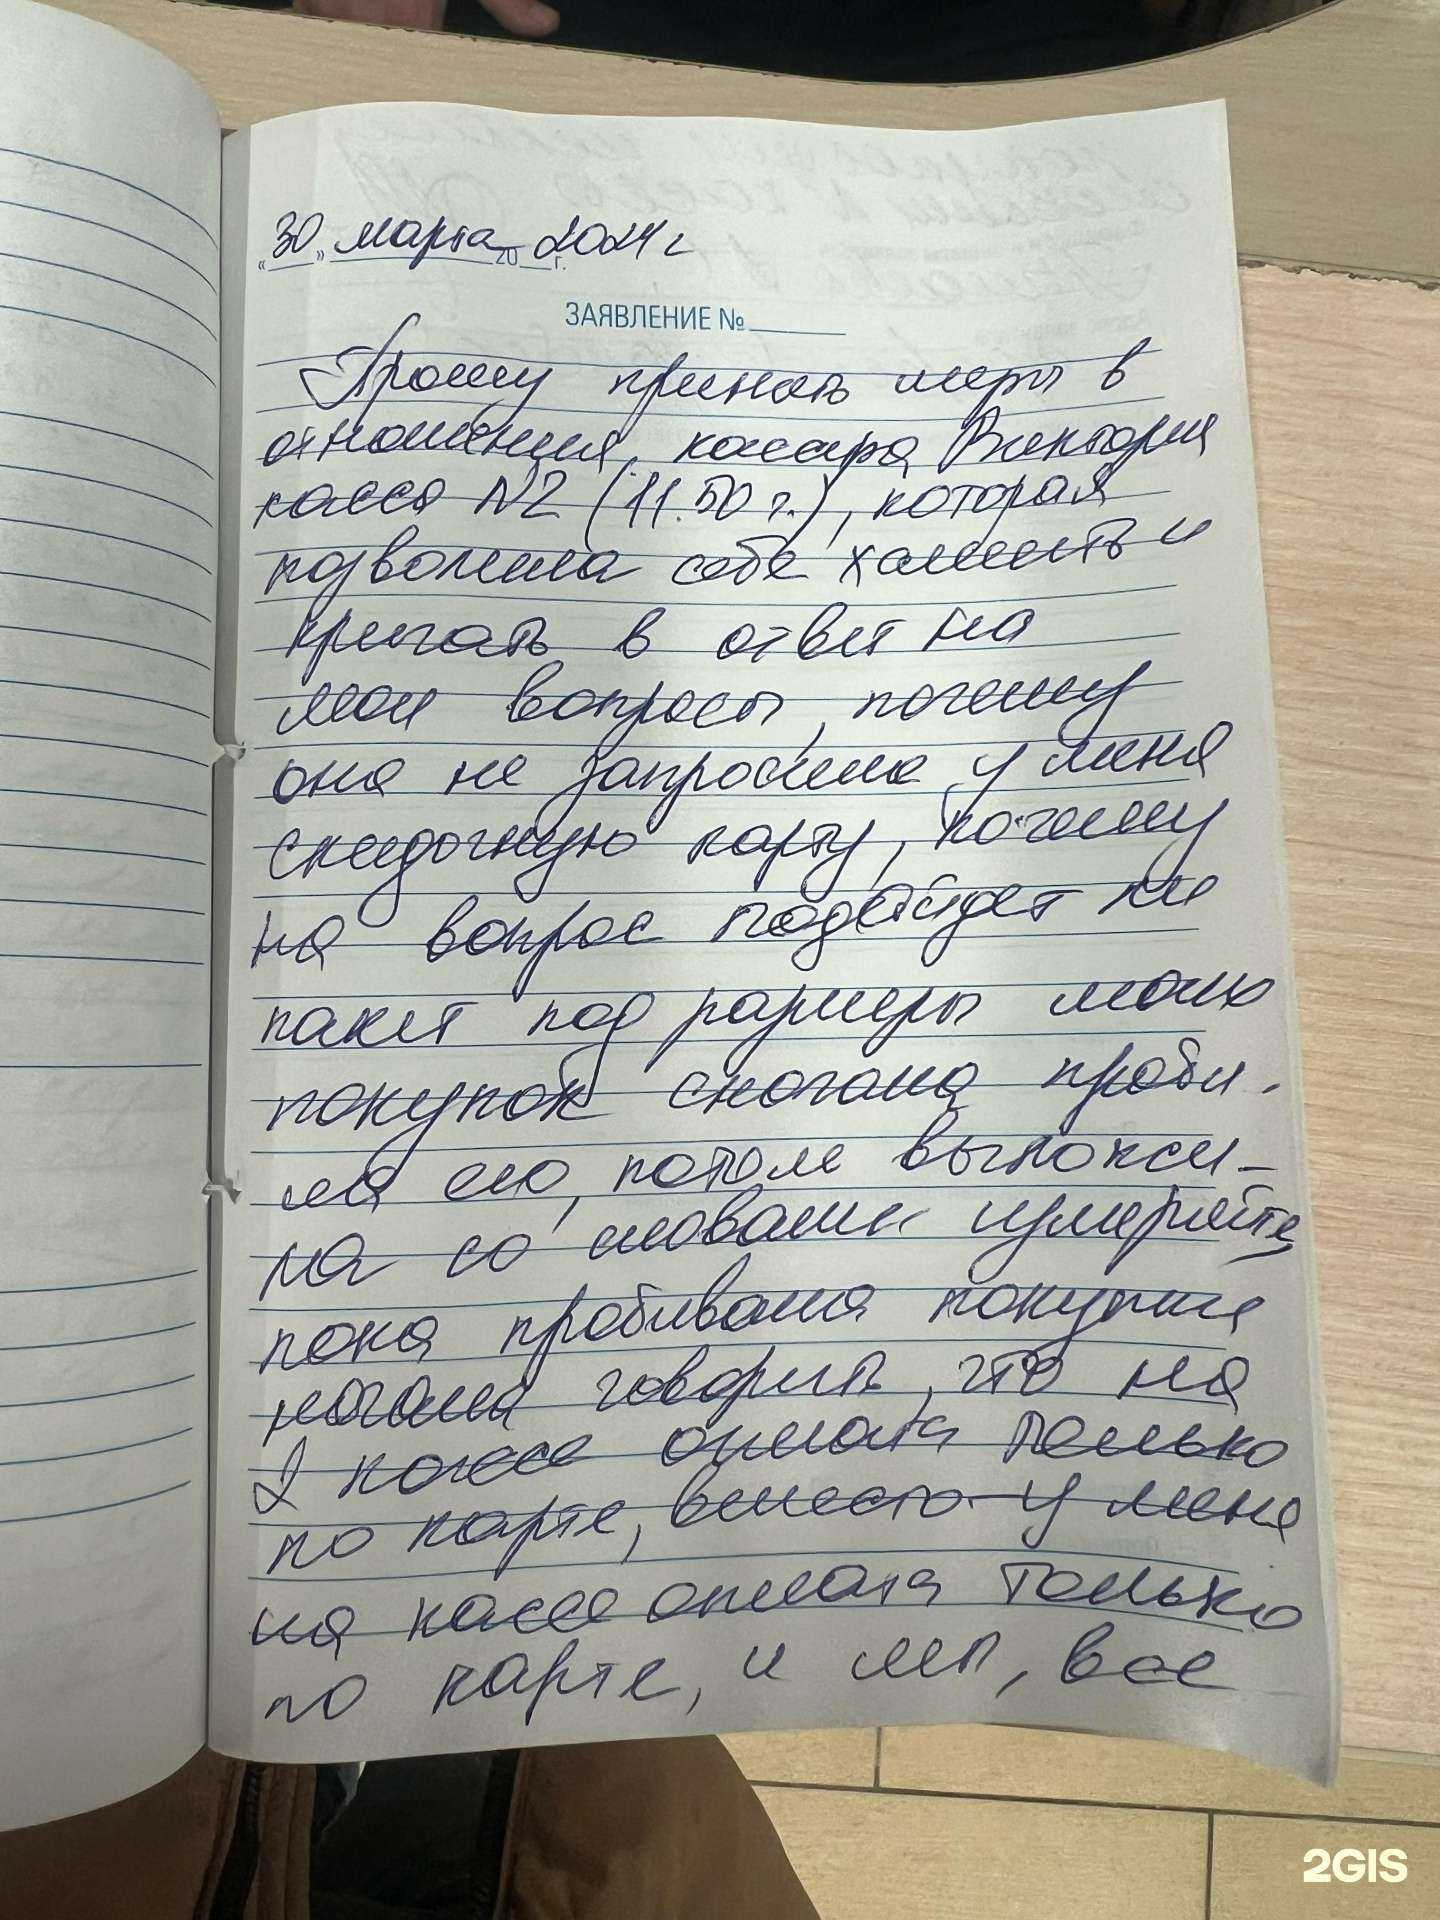 «30» марта 2024 г
20 г.
ЗАЯВЛЕНИЕ №
Прошу принять меры в
отношении кассира Виктория
касса №2 (11.50 г.), которая
позволила себе хамить и
кричать в ответ на
мои вопросы, почему
она не запросила у меня
скидочную карту, почему
на вопрос подойдет ли
пакет под размеры моих
покупок сначала проби-
ла его, потом выложи-
ла со словами измеряйте,
пока пробивала покупки
начала говорить, что на
2 кассе оплата только
по карте, вместо у меня
на кассе оплата только
по карте, и мы, все
2GIS